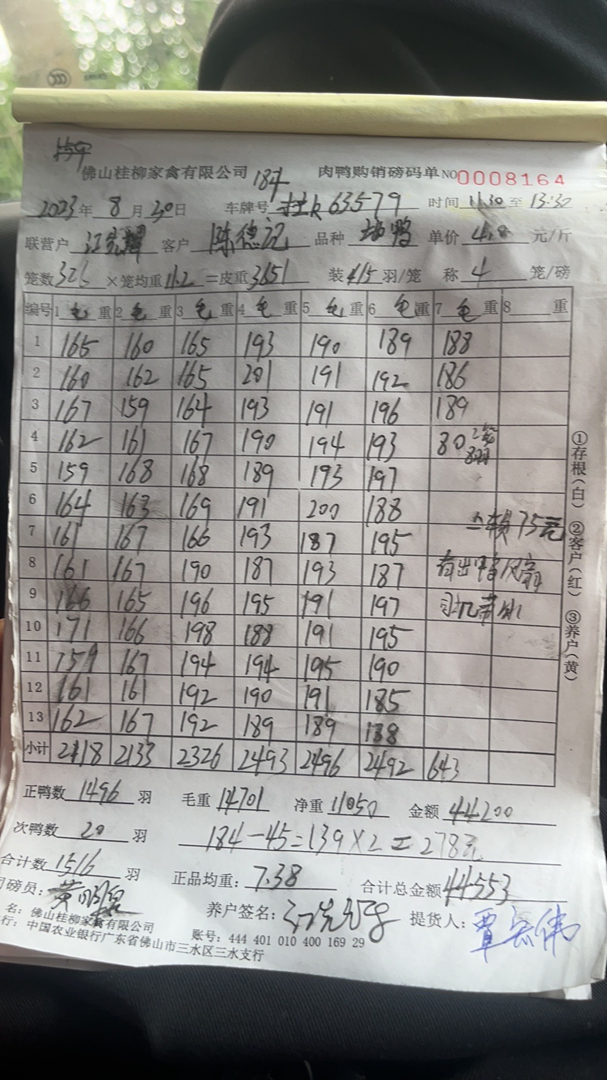 佛山桂柳家禽有限公司 184 肉鸭购销磅码单 NO 0008164
2023年 8月30日 车牌号 桂R63579 时间 11:30 至 13:30
联营户 客户 陈德记 品种 单价 元/斤
笼数 326 ×笼均重 11.2 =皮重 3651 装 4/5 羽/笼 称 4 笼/磅
编号 1 毛 重 2 毛 重 3 毛 重 4 毛 重 5 毛 重 6 毛 重 7 毛 重 8 重
1 165 160 165 193 190 189 188
2 160 162 165 201 191 192 186
3 167 159 164 193 191 196 189
4 162 161 167 190 194 193 80
5 159 168 168 189 193 197
6 164 163 169 191 200 188
7 161 167 166 193 187 195
75元
8 161 167 190 187 193 187
9 166 165 196 195 191 197
10 171 166 198 188 191 195
11 159 167 194 194 195 190
12 161 161 192 190 191 185
13 162 167 192 189 189 188
小计 2118 2133 2326 2493 2496 2492 643
①存根(白) ②客户(红) ③养户(黄)
正鸭数 1496 羽 毛重 14701 净重 11050 金额 44200
次鸭数 20 羽 184-45=139×2=278元
合计数 1516 羽 正品均重: 7.38 合计总金额 44553
司磅员: 养户签名: 提货人: 覃宏伟
名: 佛山桂柳家禽有限公司
行: 中国农业银行广东省佛山市三水区三水支行 账号: 444 401 010 400 169 29